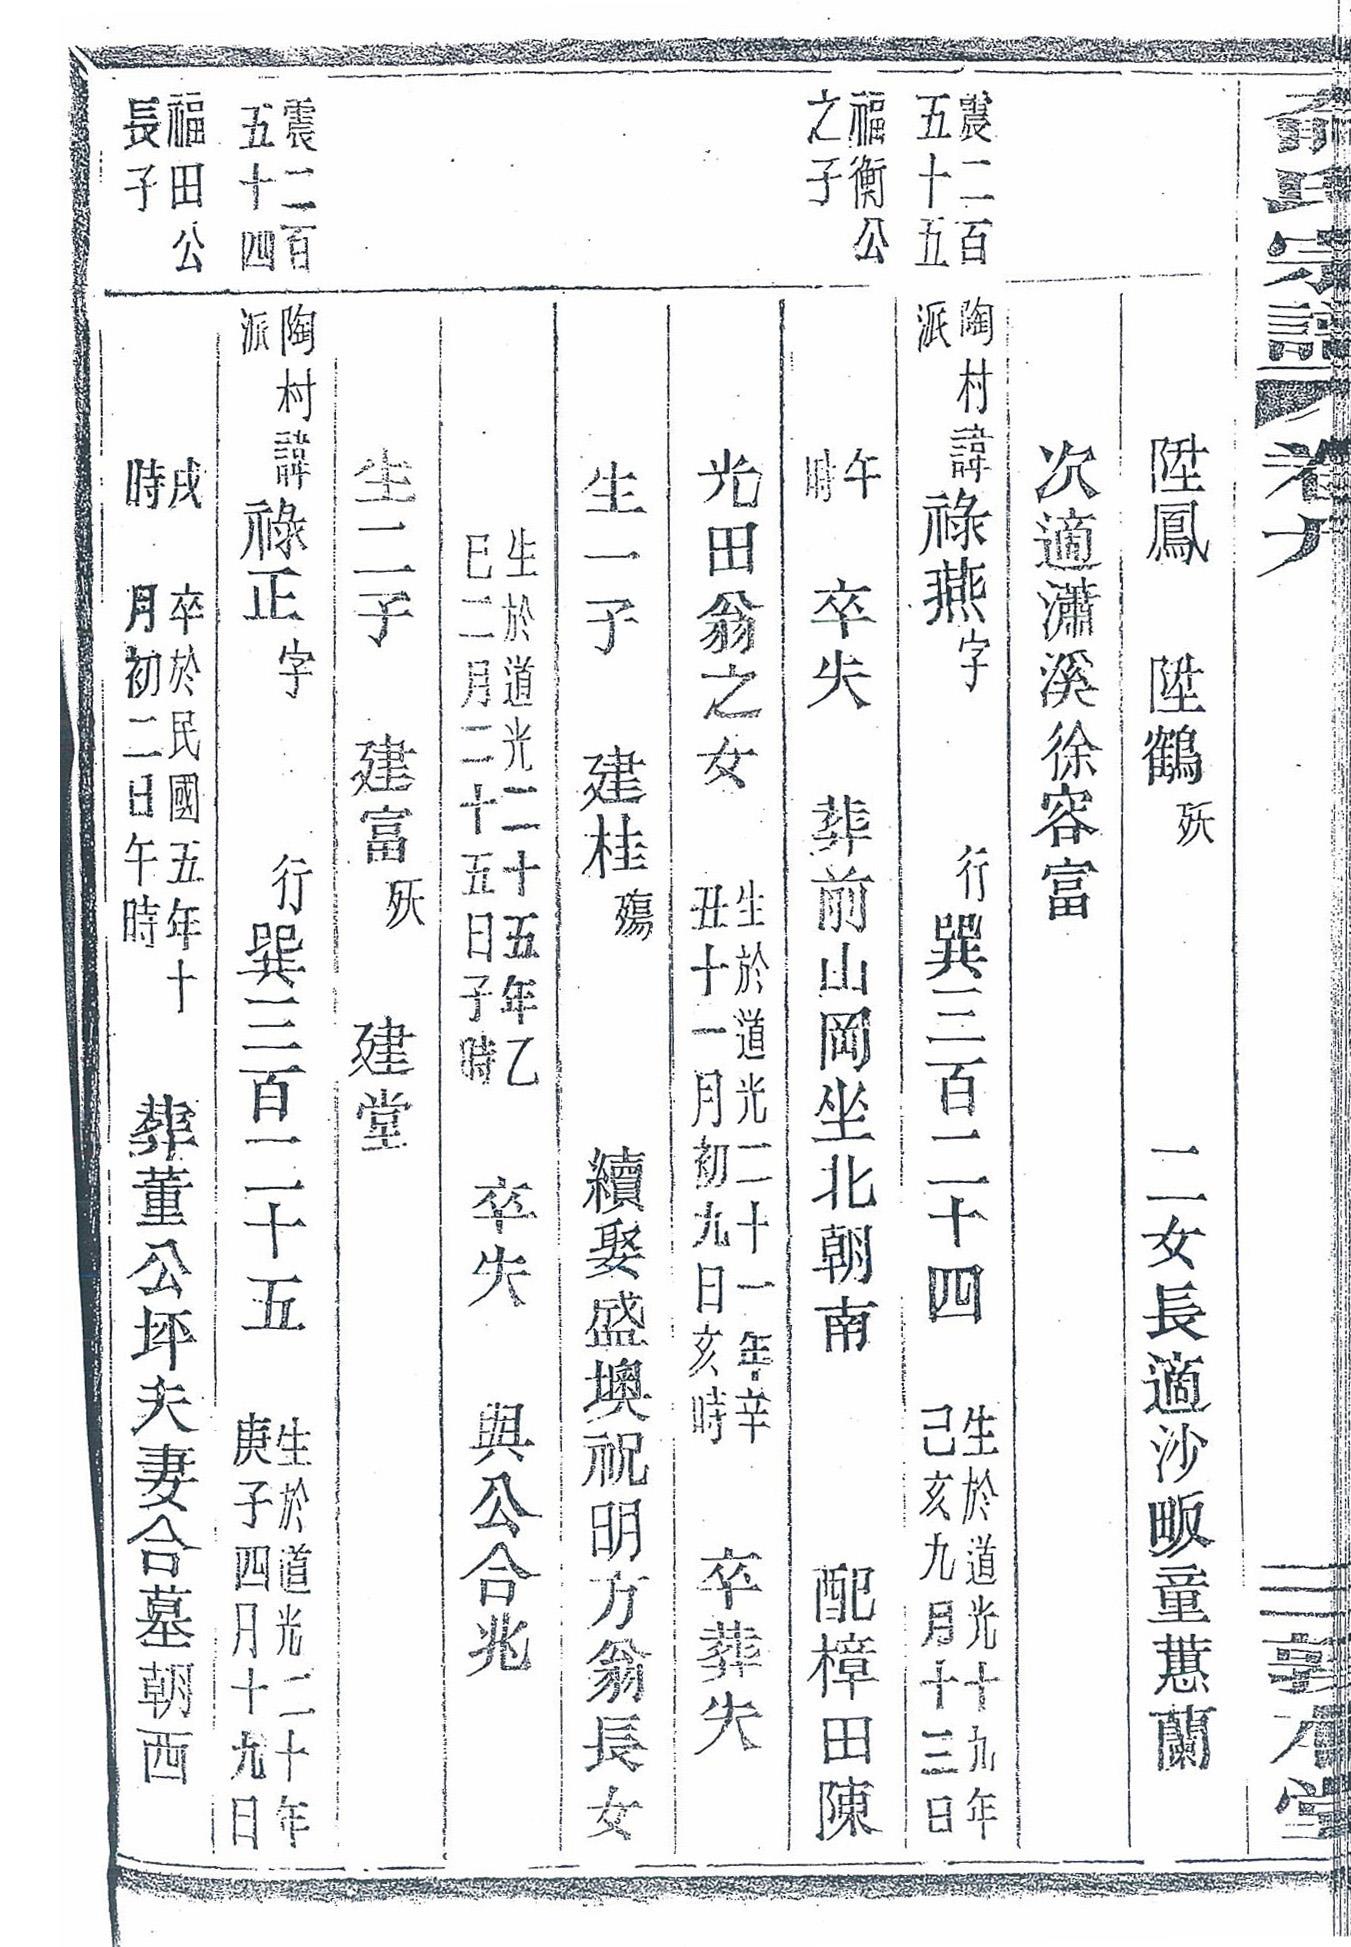 氏宗譜 卷 三 敦本堂
陞鳳 陞鶴 殀 二女長適沙畈童蕙蘭
次適瀟溪徐容富
震二百
五十五
陶村
派
諱祿燕字 行巽三百二十四
生於道光十九年
己亥九月十三日
福衡公
之子
午
時
卒失 葬前山岡坐北朝南 配樟田陳
光田翁之女
生於道光二十一年辛
丑十一月初九日亥時
卒葬失
生一子 建桂 殤 續娶盛墺祝明方翁長女
生於道光二十五年乙
巳二月二十五日子時
卒失 與公合兆
生二子 建富 殀 建堂
震二百
五十四
陶村
派
諱祿正字 行巽三百二十五
生於道光二十年
庚子四月十九日
福田公
長子
戌
時
卒於民國五年十
月初二日午時
葬董公坪夫妻合墓朝西